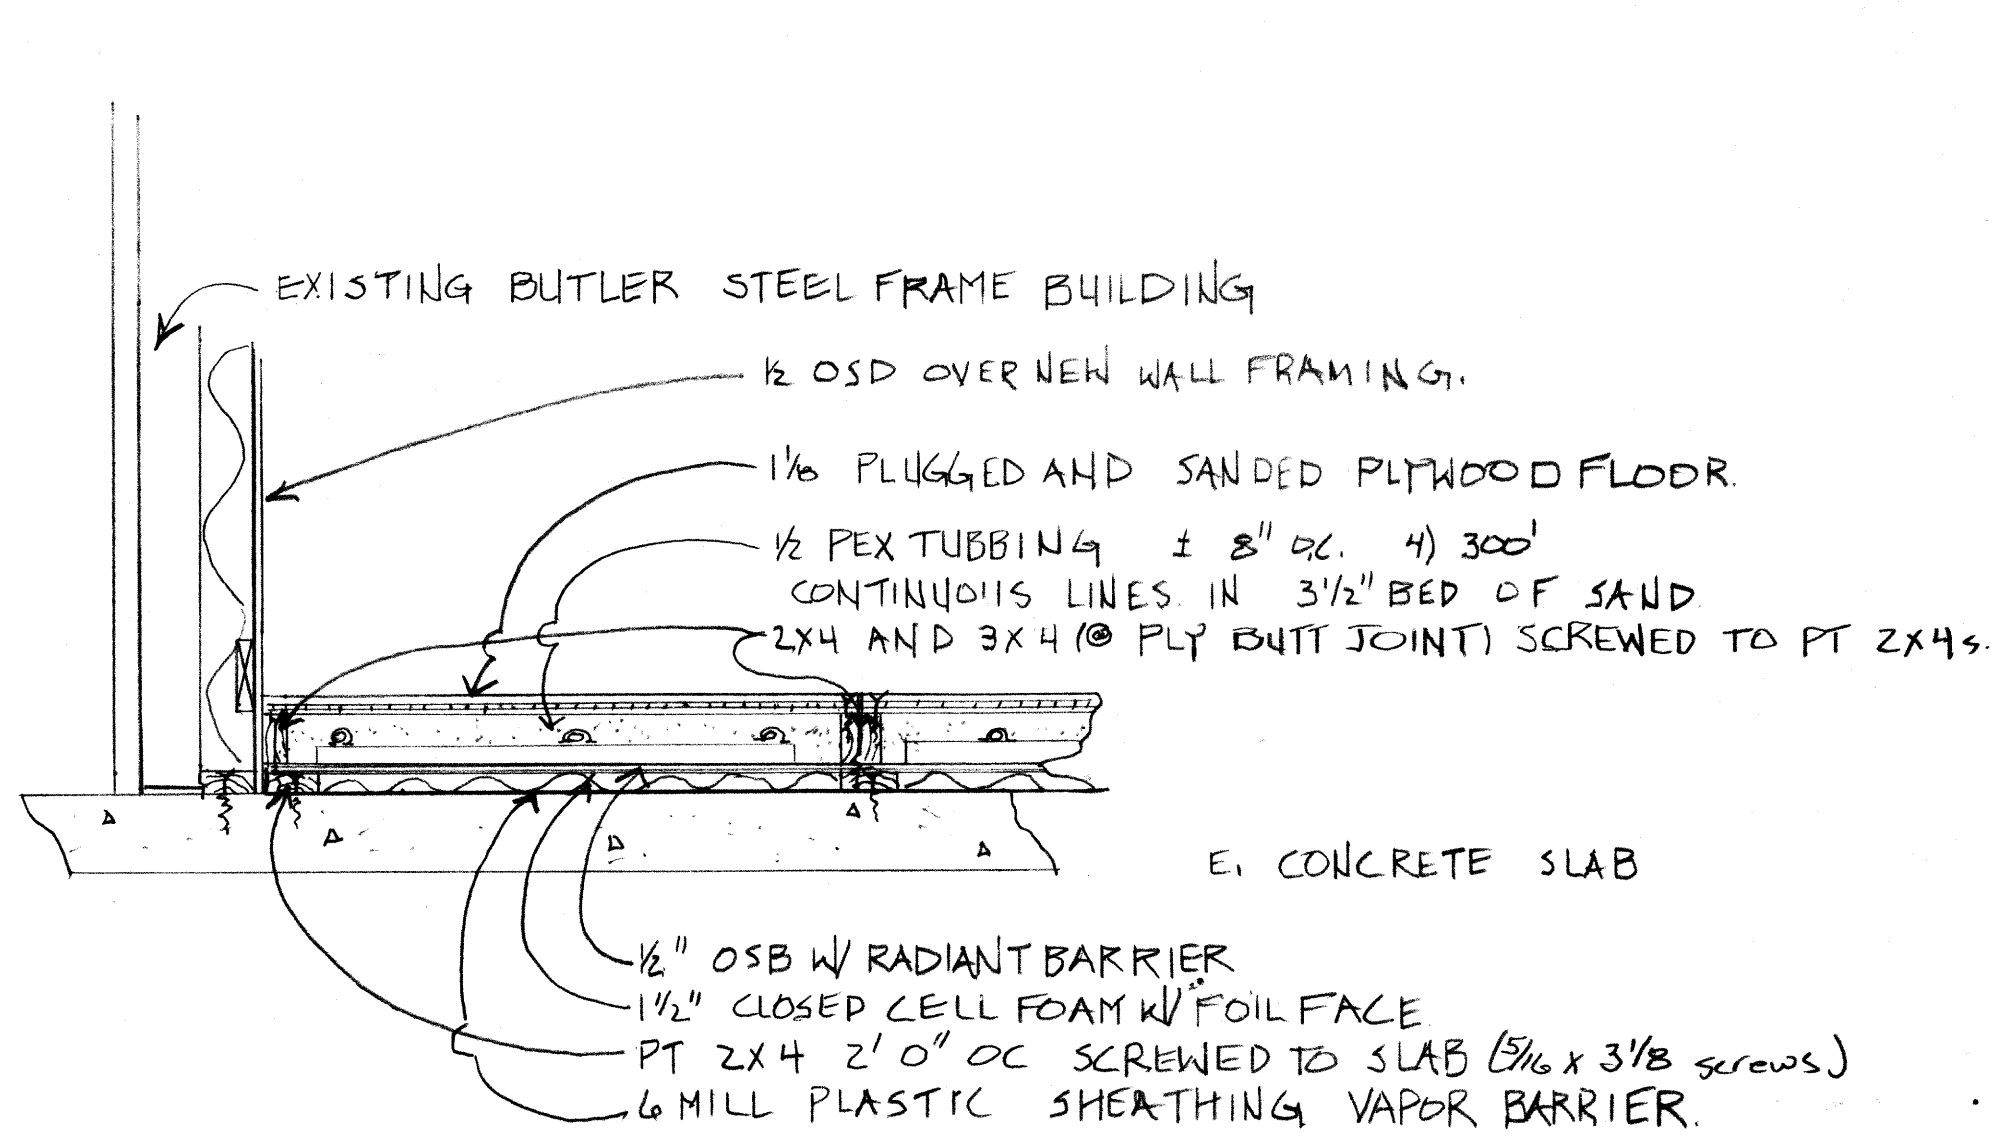 EXISTING BUTLER STEEL FRAME BUILDING
1/2 OSD OVER NEW WALL FRAMING.
1 1/8 PLUGGED AND SANDED PLYWOOD FLOOR.
1/2 PEX TUBBING ± 8" O.C. 4) 300'
CONTINUOUS LINES IN 3 1/2" BED OF SAND
2X4 AND 3X4 (@ PLY BUTT JOINT) SCREWED TO PT 2X4s.
E. CONCRETE SLAB
1/2" OSB W/ RADIANT BARRIER
1 1/2" CLOSED CELL FOAM W/ FOIL FACE
PT 2X4 2' 0" OC SCREWED TO SLAB (5/16 x 3 1/8 screws)
6 MILL PLASTIC SHEATHING VAPOR BARRIER.